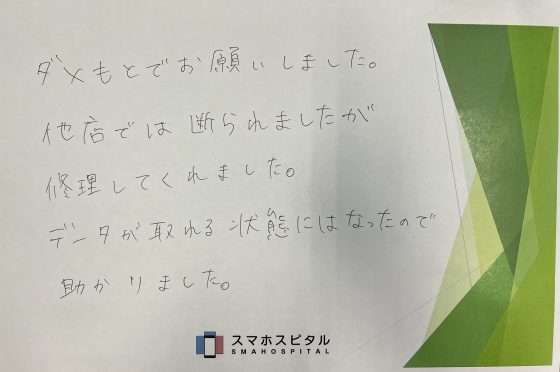 ダメもとでお願いしました。
他店では断られましたが
修理してくれました。
データが取れる状態にはなったので
助かりました。
スマホスピタル
SMAHOSPITAL